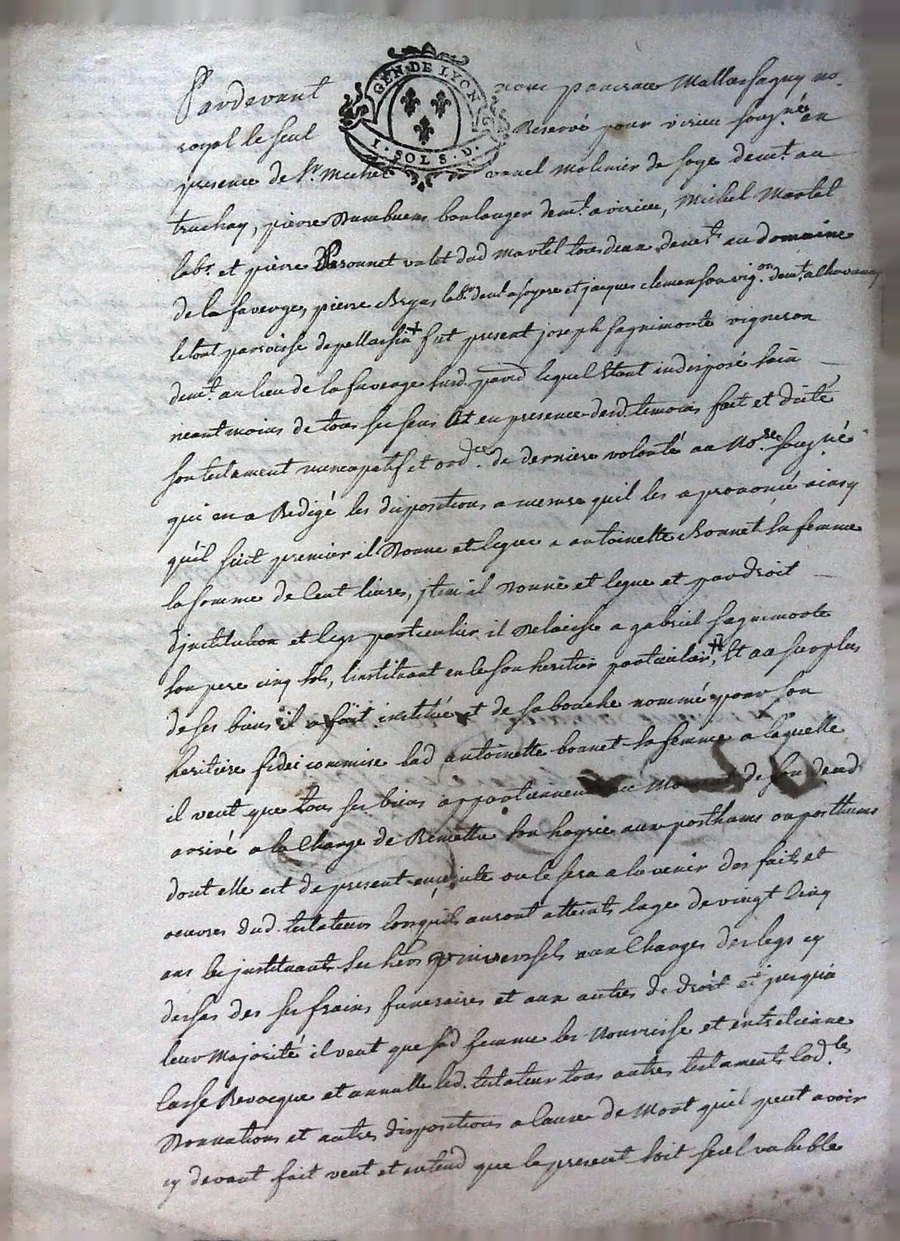 GEN. DE LYON
I. SOL S. D.
Pardevant nous pancrace Mallassagny no.
royal le seul Reservé pour virieu sousigné en
presence de Sr. Michel vanel Molinier de soye demt. au
truchay, pierre boulanger demt. a virieu, Michel Martel
labr. et pierre Peronnet valet dud martel tous deux demts. au domaine
de la faverges, pierre labr. demt. a et jacques clemenson vigon. demt. a
le tout paroisse de pellassin + fut present joseph fagnimorte vigneron
demt. au lieu de la faverge susd. parsse lequel Etant indisposé sain
neantmoins de tous ses sens Et en presence desd. temoins fait et dicté
son testament nuncupatif et ordce. de derniere volonté au Nore. sousigné
qui en a Redigé les dispositions a mesure quil les a prononcé ainsy
qu'il suit premier il Donne et legue a antoinette Bonnet sa femme
la somme de Cent livres, jtem il Donne et legue et par droit
d'jnstitution et legs particulier il Delaisse a gabriel fagnimorte
son pere cinq sols, linstituant en ce son heritier particulier, Et au surplus
de ses biens il a fait institué et de sa bouche nommé pour son
heritiere fidei commise lad antoinette bonnet sa femme a laquelle
il veut que tous ses biens appartiennent au Moment de son deced
arrivé a la Charge de Remettre son hoyrie aux posthumes ou posthumes
dont elle est de present enceinte ou le sera a lavenir des faits et
oeuvres dud. testateur lorsquils auront atteints lage de vingt Cinq
ans les jnstituants ses hers universels aux Charges des legs cy
dessus des ses frains funeraires et aux autres de droit et jusqua
leur Majorité il veut que sad femme les Nourrisse et entretienne
Casse Revocque et annulle led. testateur tous autres testaments Codles
Donnations et autres dispositions a Cause de Mort quil peut avoir
cy devant fait veut et entend que le present soit seul valable